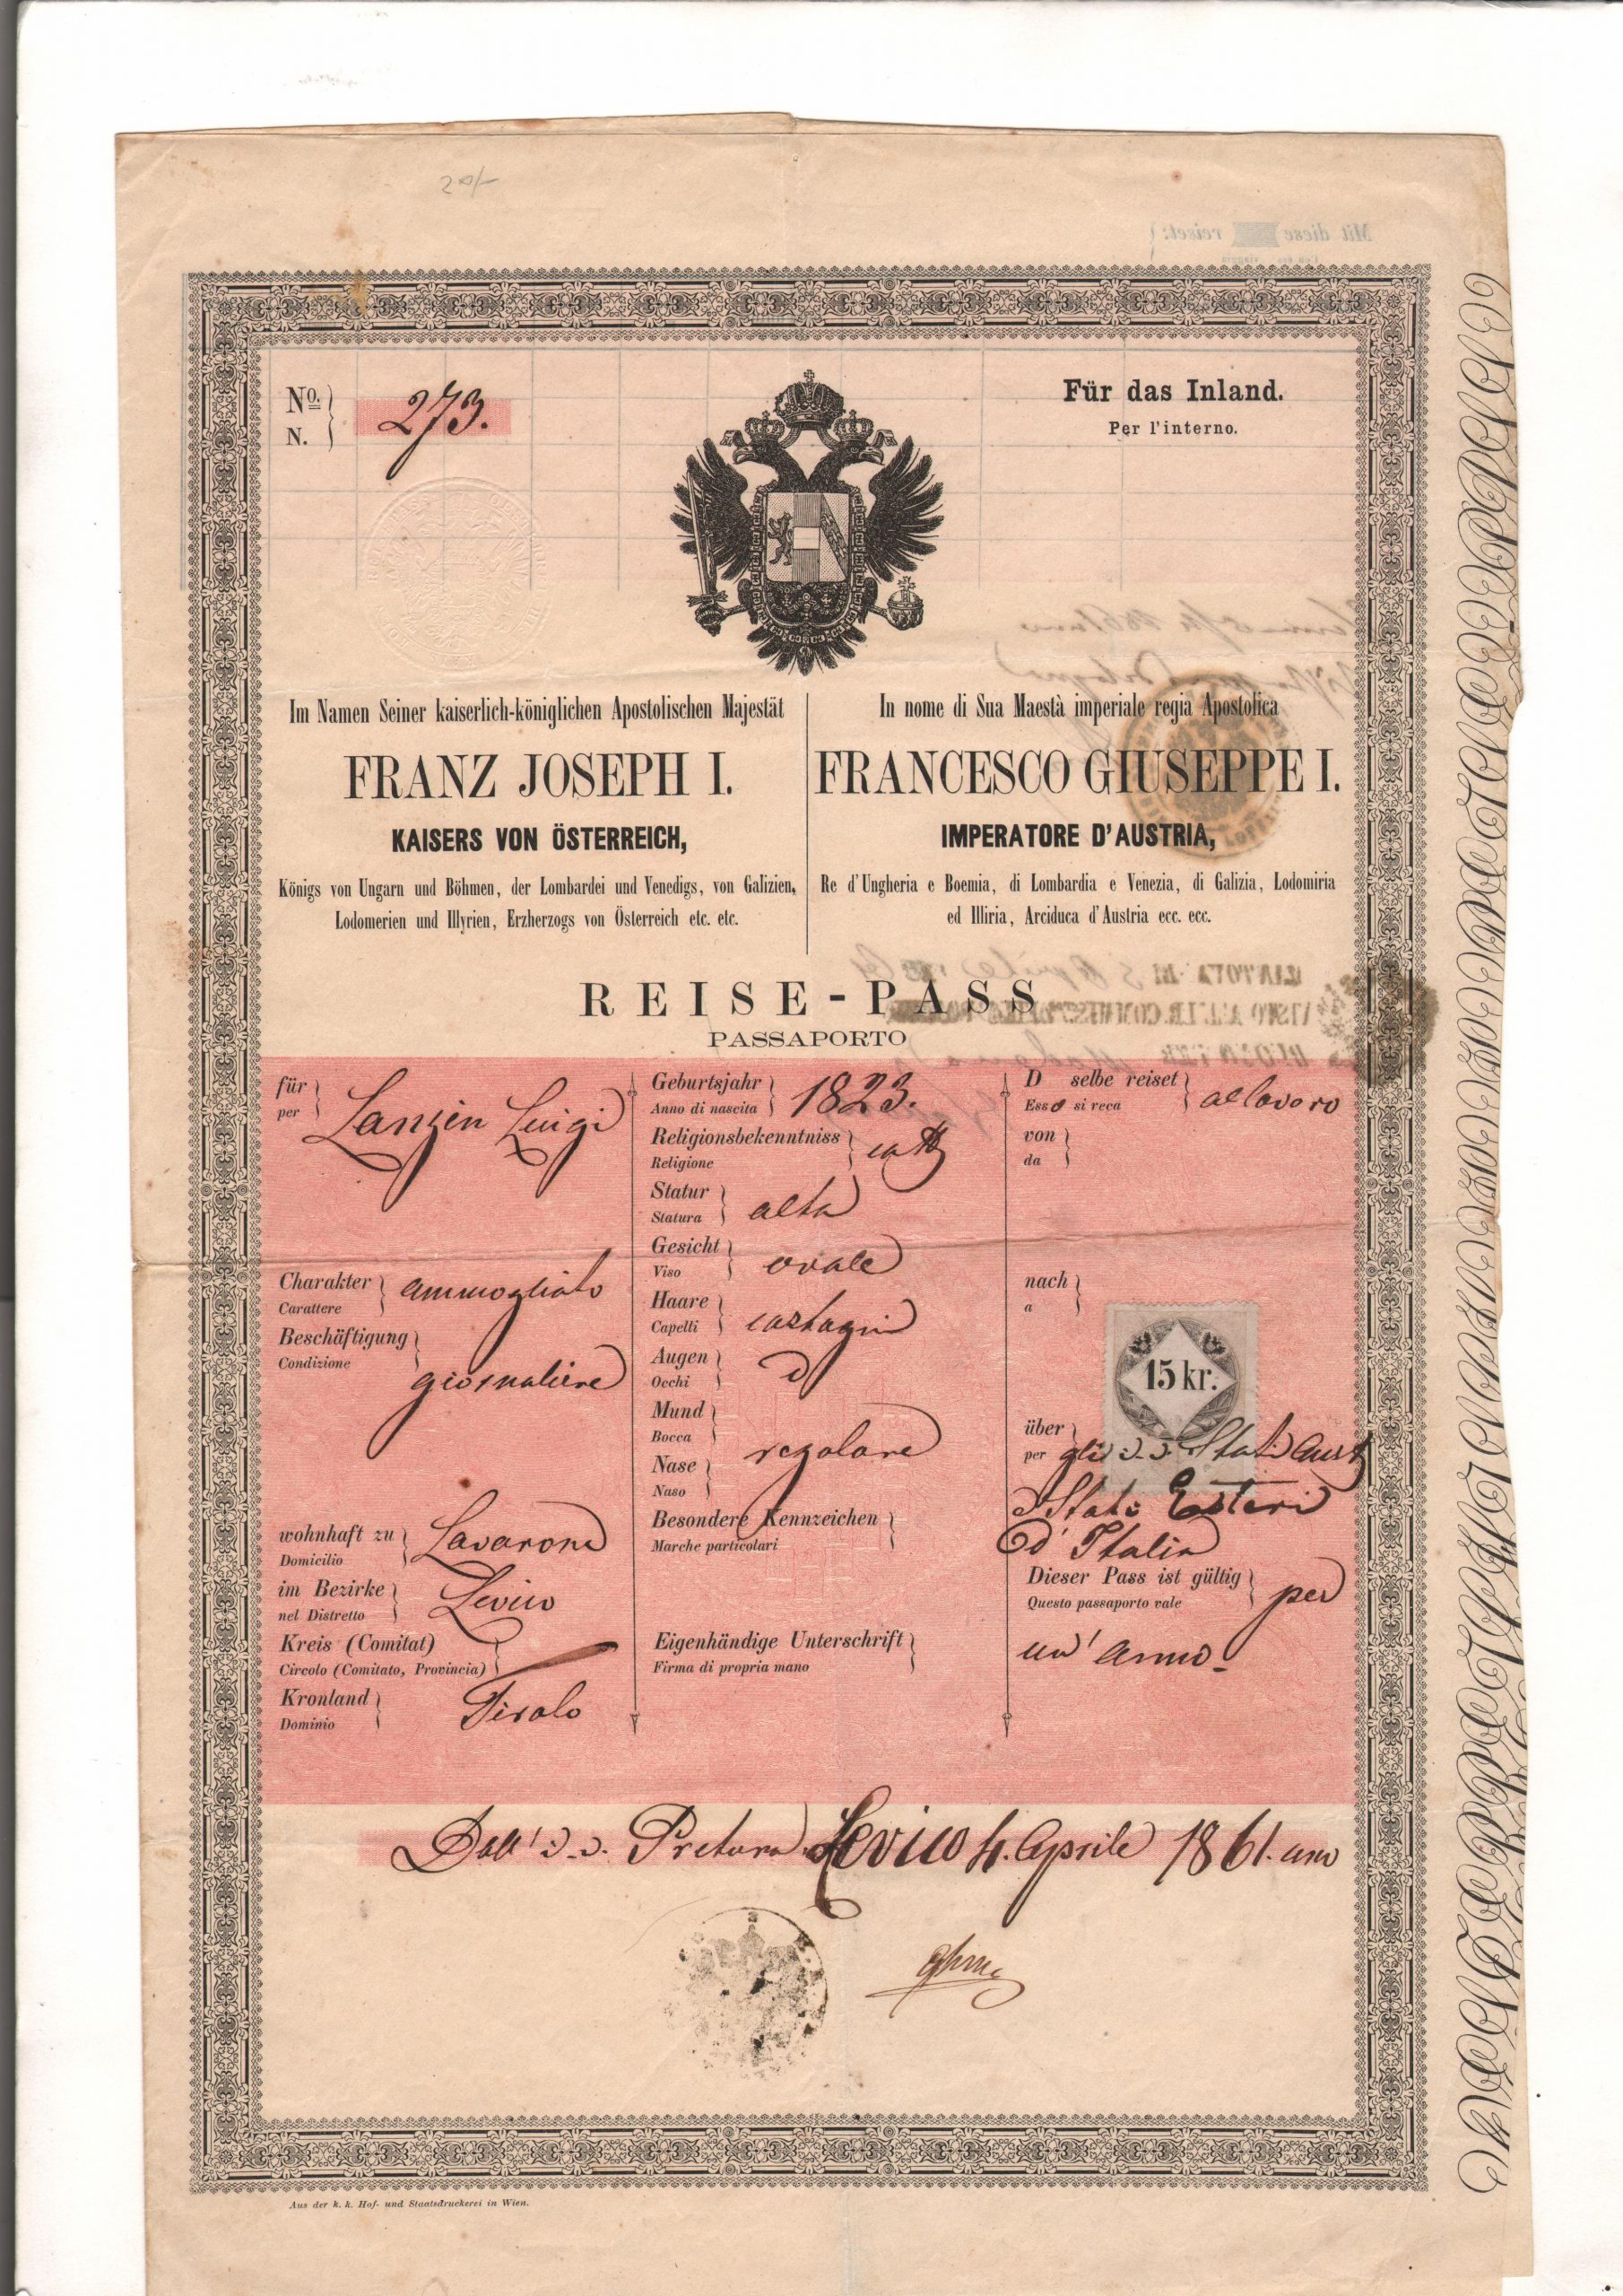 20/-
Mit diese reiset:
Nº
N.
273.
Für das Inland.
Per l'interno.
Im Namen Seiner kaiserlich-königlichen Apostolischen Majestät
FRANZ JOSEPH I.
KAISERS VON ÖSTERREICH,
Königs von Ungarn und Böhmen, der Lombardei und Venedigs, von Galizien,
Lodomerien und Illyrien, Erzherzogs von Österreich etc. etc.
In nome di Sua Maestà imperiale regia Apostolica
FRANCESCO GIUSEPPE I.
IMPERATORE D'AUSTRIA,
Re d'Ungheria e Boemia, di Lombardia e Venezia, di Galizia, Lodomiria
ed Illiria, Arciduca d'Austria ecc. ecc.
MANTOVA LI 5 Aprile
REISE-PASS
PASSAPORTO
für
per
Lanzin Luigi
Charakter
Carattere
ammogliato
Beschäftigung
Condizione
giornaliere
wohnhaft zu
Domicilio
Lavarone
im Bezirke
nel Distretto
Levico
Kreis (Comitat)
Circolo (Comitato, Provincia)
Kronland
Dominio
Tirolo
Geburtsjahr
Anno di nascita
1823.
Religionsbekenntniss
Religione
catt
Statur
Statura
alta
Gesicht
Viso
ovale
Haare
Capelli
castagni
Augen
Occhi
d
Mund
Bocca
Nase
Naso
regolare
Besondere Kennzeichen
Marche particolari
Eigenhändige Unterschrift
Firma di propria mano
D selbe reiset
Esso si reca
al lavoro
von
da
nach
a
15 kr.
über
per
gli i. i. Stati Aust
e Stato Esteri
d'Italia
Dieser Pass ist gültig
Questo passaporto vale
per
un' anno.
Dall' i. i. Pretura Levico 4. Aprile 1861.
Aus der k. k. Hof- und Staatsdruckerei in Wien.